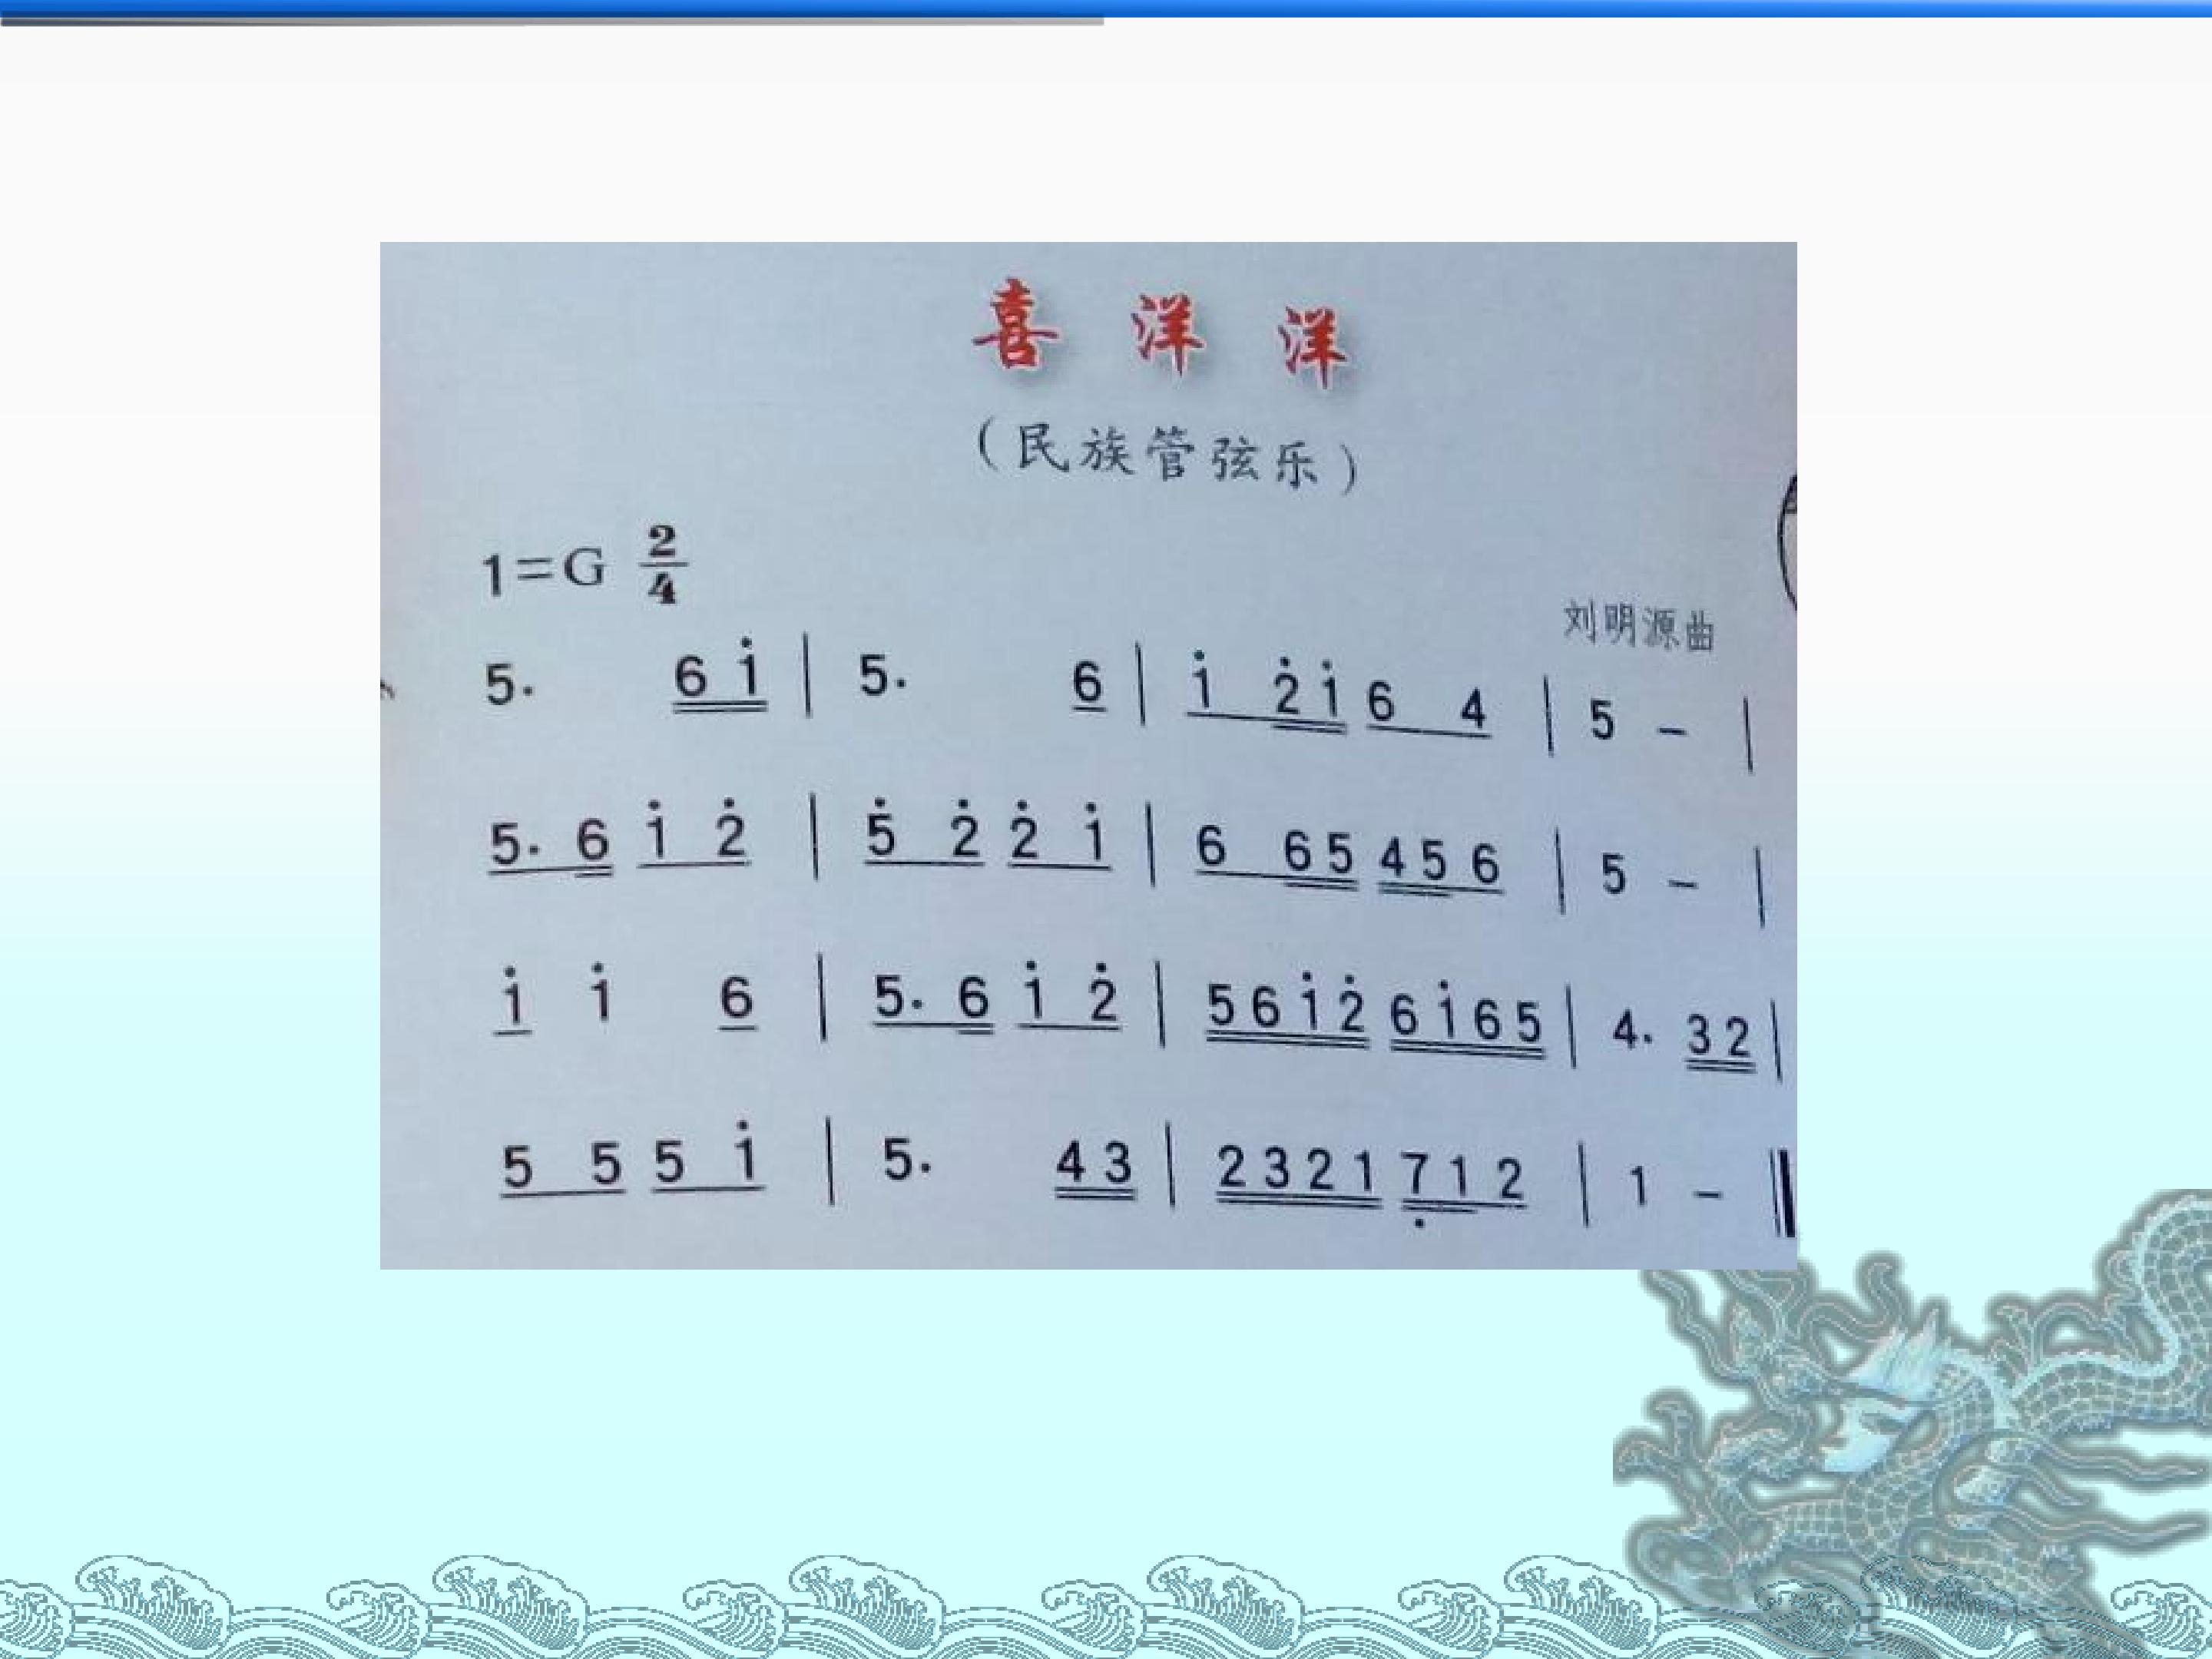 喜洋洋
(民族管弦乐)
1=G 2/4
刘明源曲
5· 6 i̇ | 5· 6 | i̇ 2̇ i̇ 6 4 | 5 – |
5· 6 i̇ 2̇ | 5̇ 2̇ 2̇ i̇ | 6 6 5 4 5 6 | 5 – |
i̇ i̇ 6 | 5· 6 i̇ 2̇ | 5 6 i̇ 2̇ 6 i̇ 6 5 | 4· 3 2 |
5 5 5 i̇ | 5· 4 3 | 2 3 2 1 7̣ 1 2 | 1 – ‖